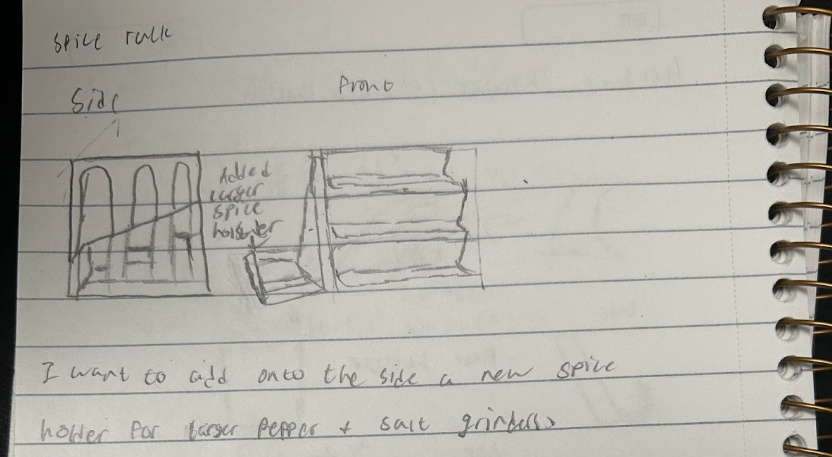 Spice rack
Side
Front
Added
larger
spice
holster
I want to add onto the side a new spice
holder for larger pepper + salt grinders.